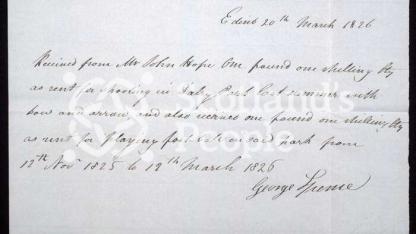 Edinb 20th March 1826
Received from Mr John Hope One pound one shilling Stg
as rent for shooting in Dalry Park last summer with
bow and arrow and also received one pound one shilling Stg
as rent for playing foot ball in said park from
12th Nov 1825 to 12th March 1826
George Spence
Scotland's
People